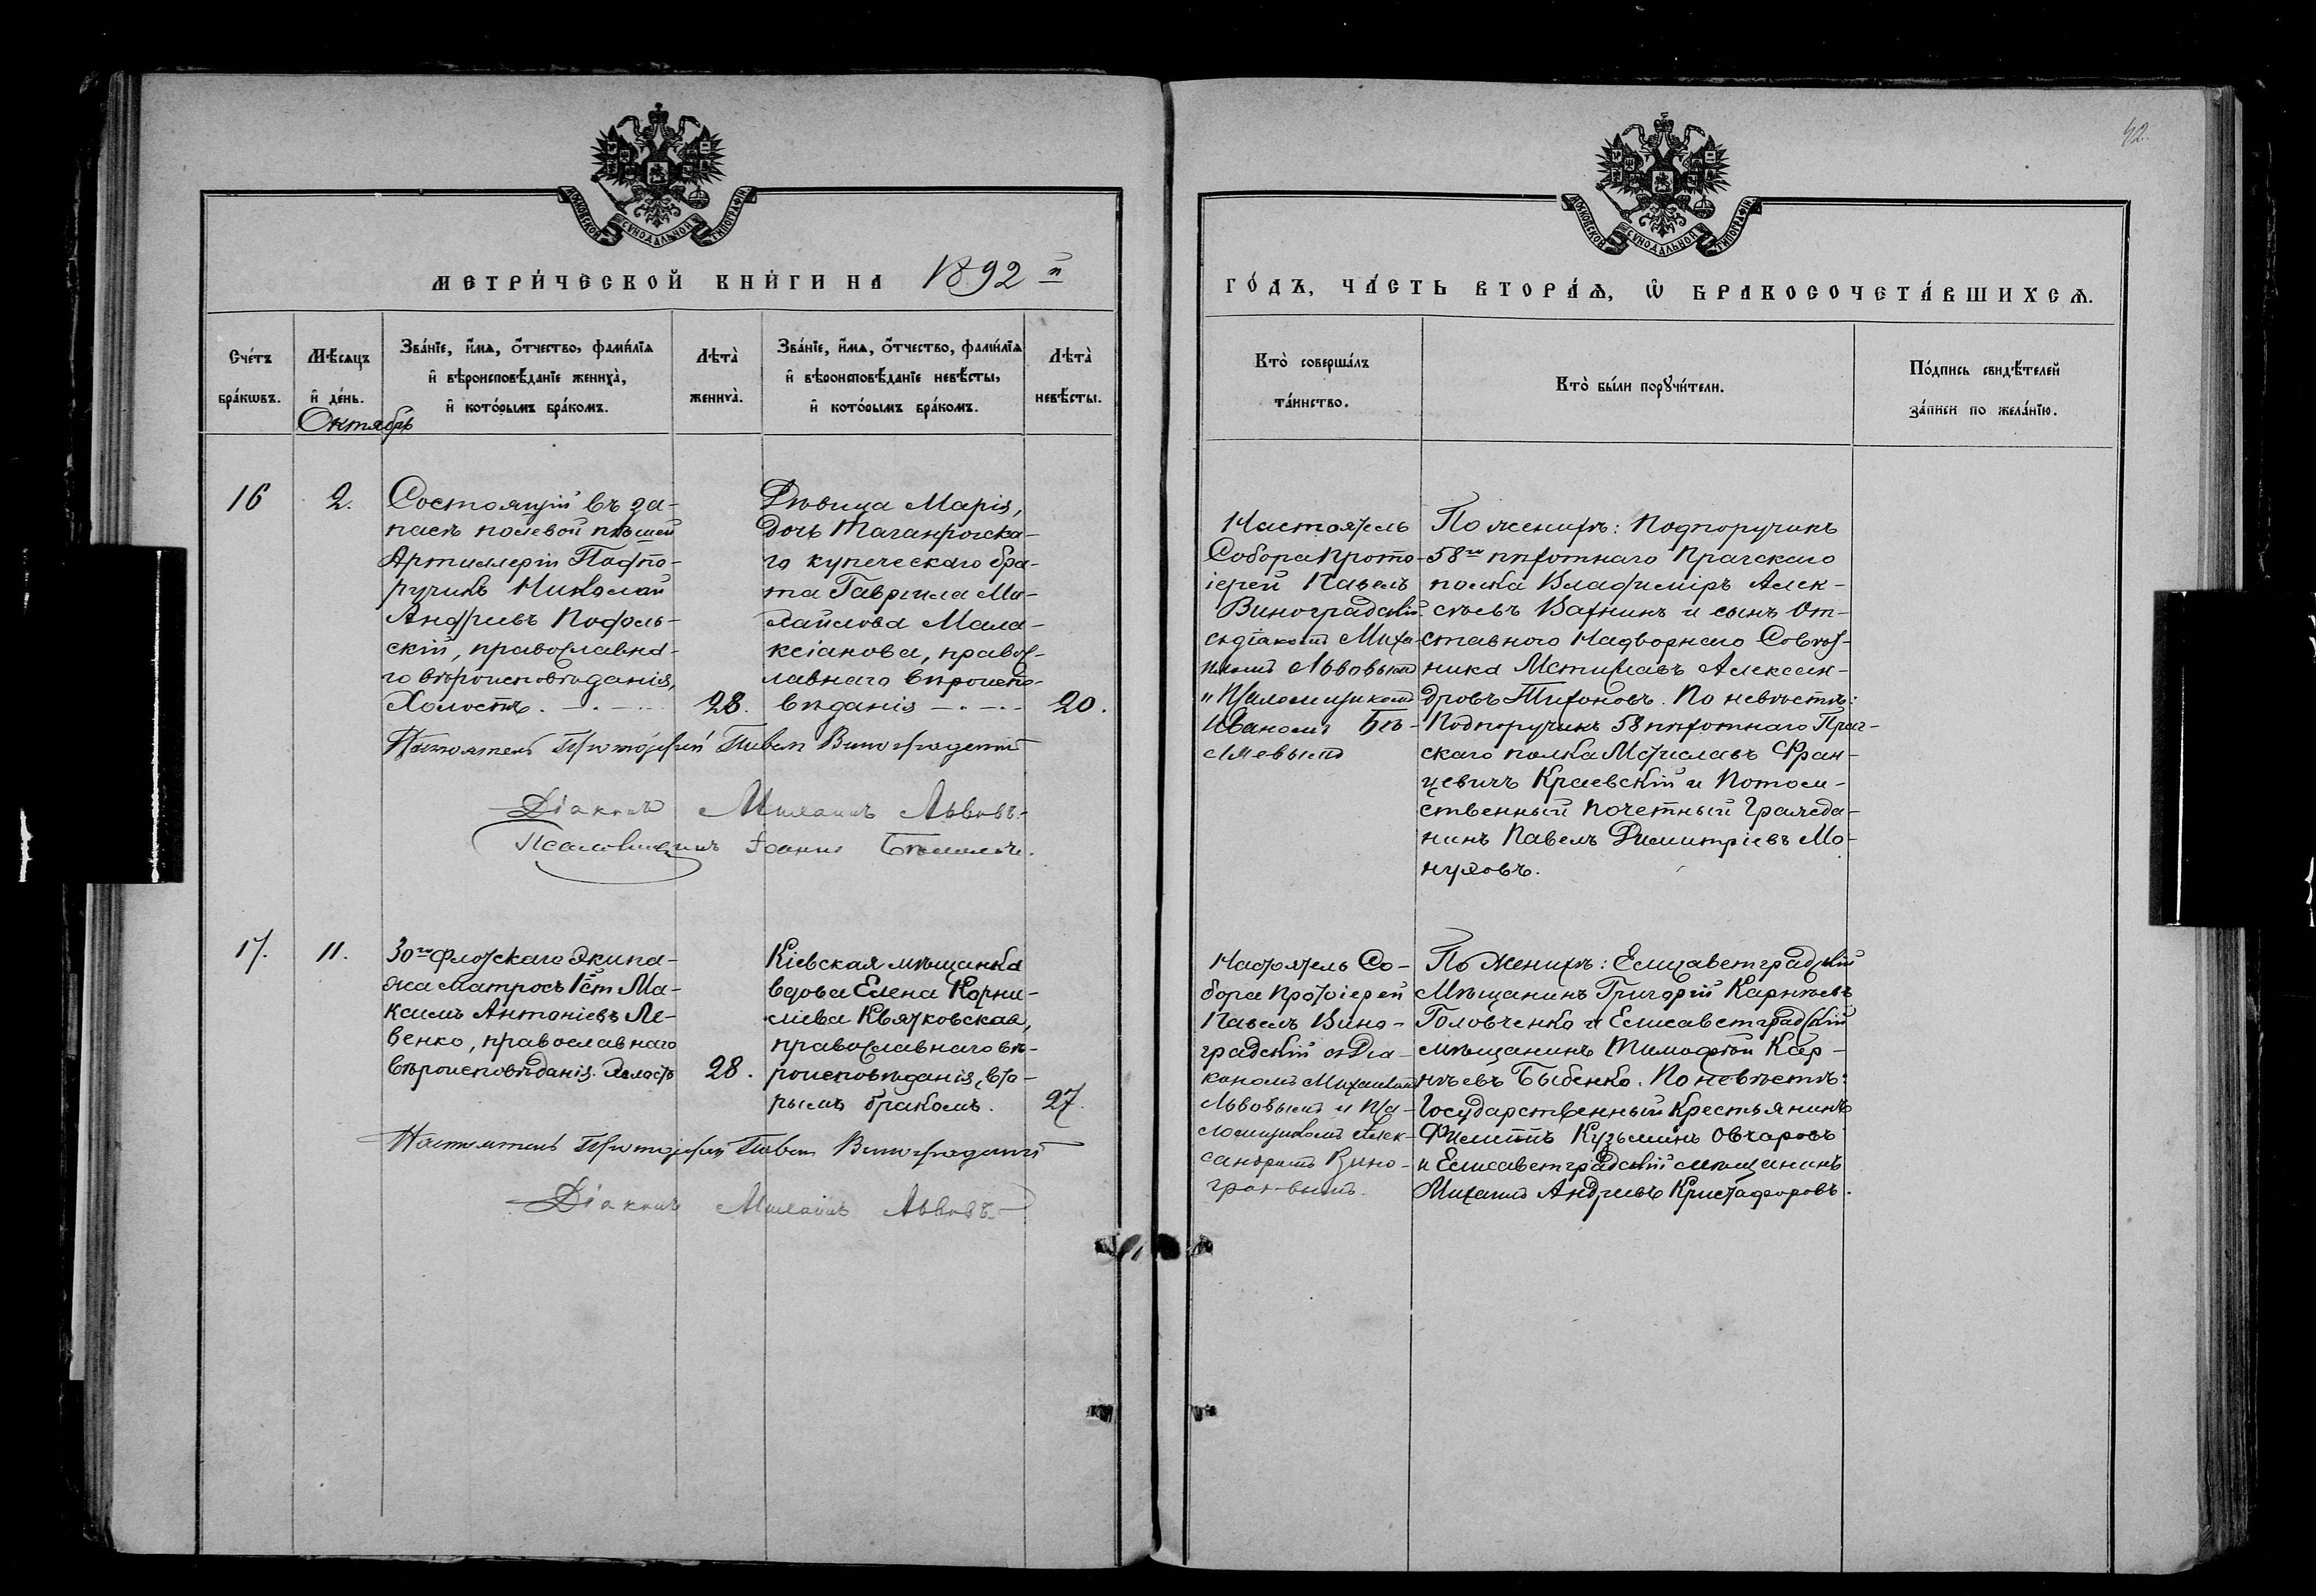 42.
МОСКОВСКОЙ СѴНОДАЛЬНОЙ ТИПОГРАФІИ
МОСКОВСКОЙ СѴНОДАЛЬНОЙ ТИПОГРАФІИ
МЕТРИ́ЧЕСКОЙ КНИ́ГИ НА 1892й
ГО́ДЪ, ЧА́СТЬ ВТОРА́Ѧ, Ѡ҆ БРАКОСОЧЕТА́ВШИХСѦ.
Сче́тъ
бра́кѡвъ.
Мѣ́сѧцъ
и҆ де́нь.
Октябрь
Зва́нїе, и҆́мѧ, ѻ҆́тчество, фами́лїѧ
и҆ вѣроисповѣ́данїе жениха̀,
и҆ кото́рымъ бра́комъ.
Лѣта̀
жениха̀.
Зва́нїе, и҆́мѧ, ѻ҆́тчество, фами́лїѧ
и҆ вѣроисповѣ́данїе невѣ́сты,
и҆ кото́рымъ бра́комъ.
Лѣта̀
невѣ́сты.
Кто̀ соверша́лъ
та́инство.
Кто̀ бы́ли порꙋчи́тели.
По́дпись свидѣ́телей
за́писи по жела́нїю.
16
2.
Состоящій въ за-
пасѣ полевой пѣшей
Артиллеріи Подпо-
ручикъ Николай
Андреевъ Подоль-
скій, православна-
го вѣроисповѣданія,
Холостъ.
28.
Дѣвица Марія,
дочь Таганрогска-
го купеческаго бра-
та Гавріила Ми-
хайлова Мала-
ксіанова, правос-
лавнаго вѣроиспо-
вѣданія
20.
Настоятель
Собора Прото-
іерей Павелъ
Виноградскій
съ діакономъ Миха-
иломъ Львовымъ
и Псаломщикомъ
Иваномъ Бѣ-
лиевымъ
По женихѣ: Подпоручикъ
58го пѣхотнаго Прагскаго
полка Владиміръ Алек-
сѣевъ Вахнинъ и сынъ От-
ставного Надворнаго Совѣт-
ника Мстиславъ Алексан-
дровъ Тихоновъ. По невѣстѣ:
Подпоручикъ 58 пѣхотнаго Праг-
скаго полка Мстиславъ Фран-
цевичъ Краевскій и Потом-
ственный Почетный Гражда-
нинъ Павелъ Димитріевъ Мо-
нуховъ.
Настоятель Протоіерей Павелъ Виноградскій
Діаконъ Михаилъ Львовъ.
Псаломщикъ Іоаннъ
17.
11.
30го Флотскаго Экипа-
жа матросъ 1 ст. Ма-
ксимъ Антоніевъ Ле-
венко, православнаго
вѣроисповѣданія. Холостъ
28.
Кіевская мѣщанка
вдова Елена Корни-
лiева Квятковская,
православнаго вѣ-
роисповѣданія, вто-
рымъ бракомъ.
27.
Настоятель Со-
бора Протоіерей
Павелъ Вино-
градскій съ Діа-
кономъ Михаиломъ
Львовымъ и Пса-
ломщикомъ Алек-
сандромъ Вино-
По женихѣ: Елисаветградскій
Мѣщанинъ Григорій Карнѣевъ
Головченко и Елисаветградскій
мѣщанинъ Тимофей Кар-
нѣевъ Быбенко. По невѣстѣ:
Государственный Крестьянинъ
Филиппъ Кузьминъ Овчаровъ
и Елисаветградскій мѣщанинъ
Михаилъ Андреевъ Кристафоровъ.
Настоятель Протоіерей Павелъ Виноградскій
Діаконъ Михаилъ Львовъ.